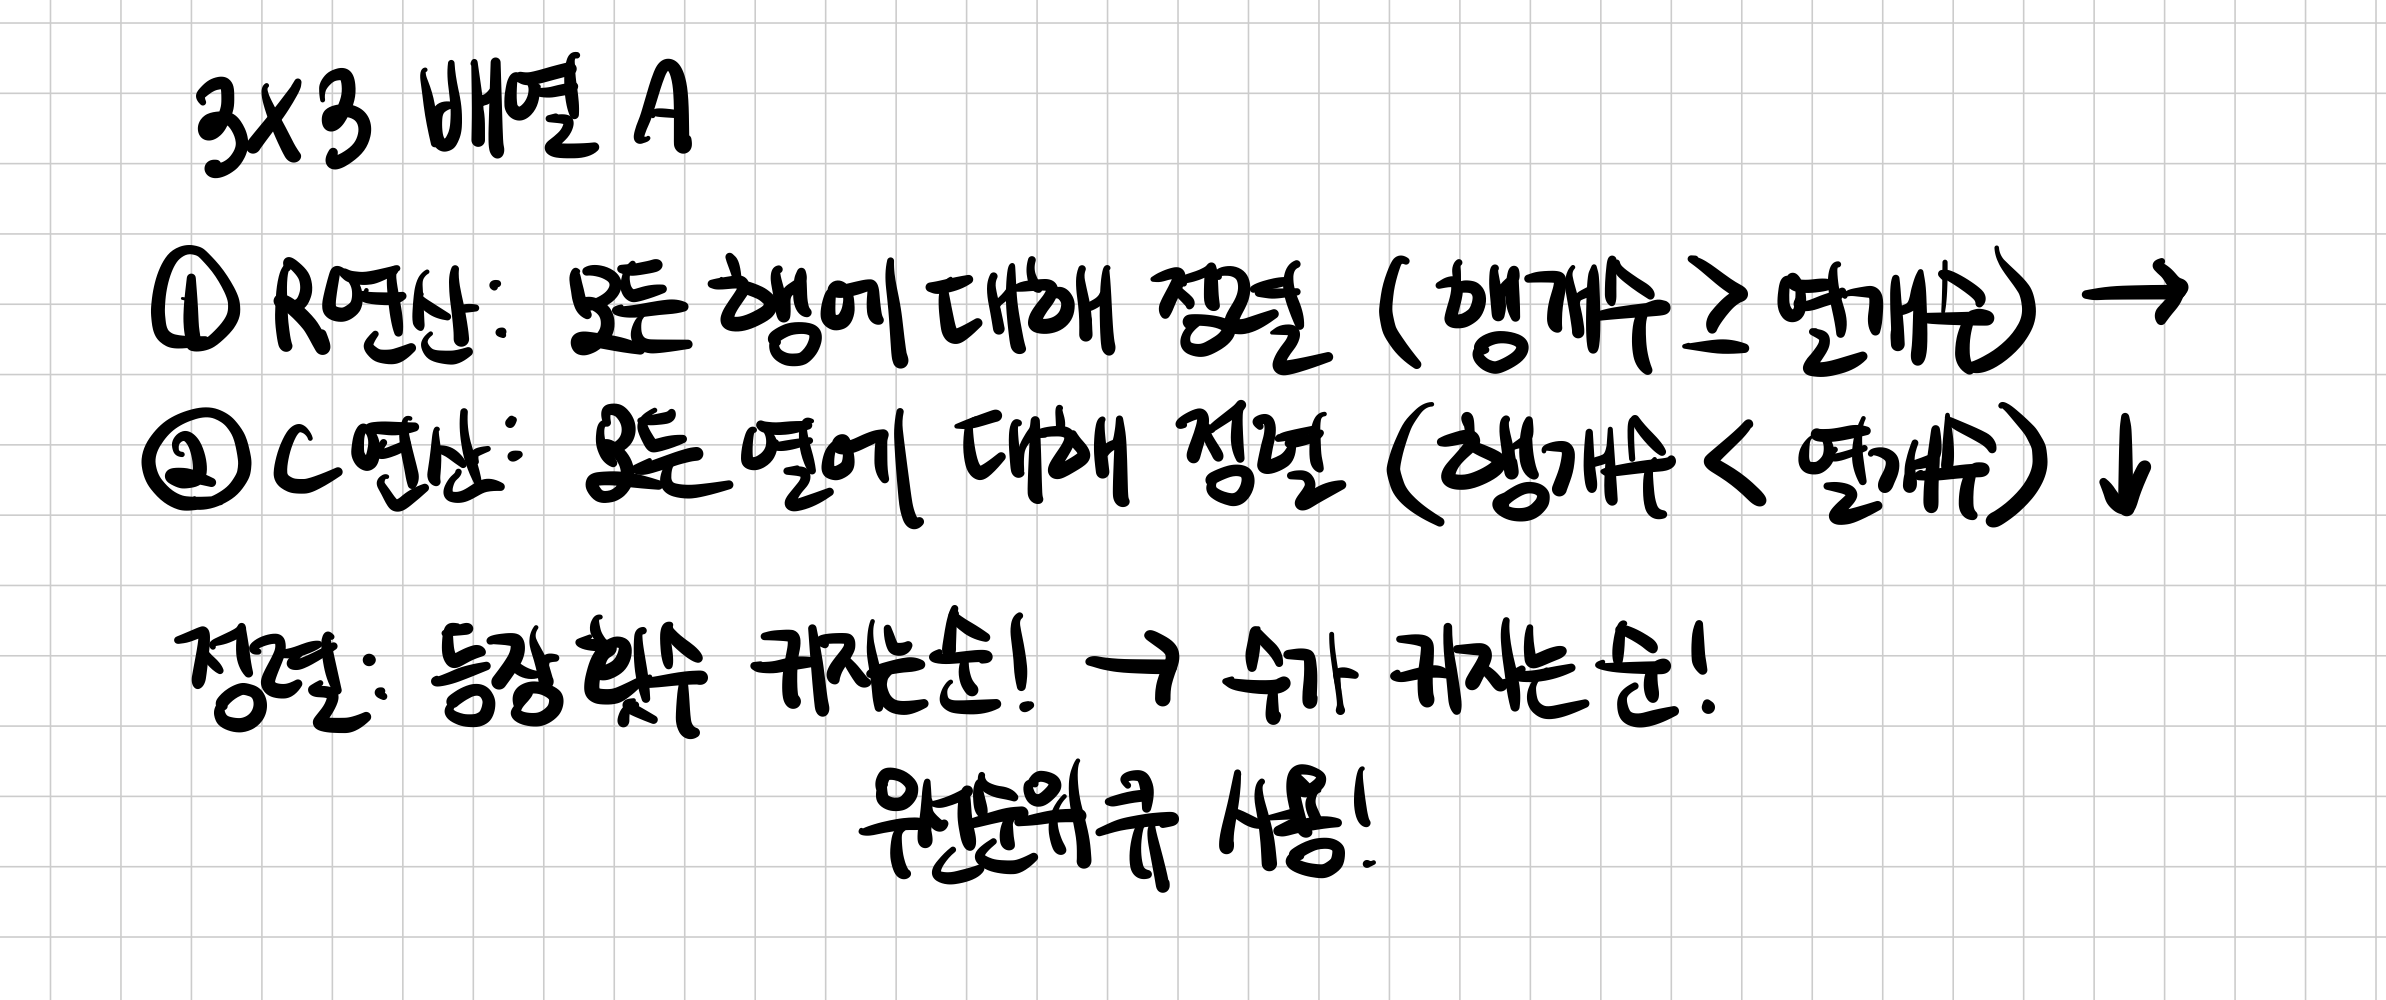 3×3 배열 A
① R연산: 모든 행에 대해 정렬 (행개수 ≥ 열개수) →
② C연산: 모든 열에 대해 정렬 (행개수 < 열개수) ↓
정렬: 등장 횟수 커지는 순! → 수가 커지는 순!
우선순위 큐 사용!